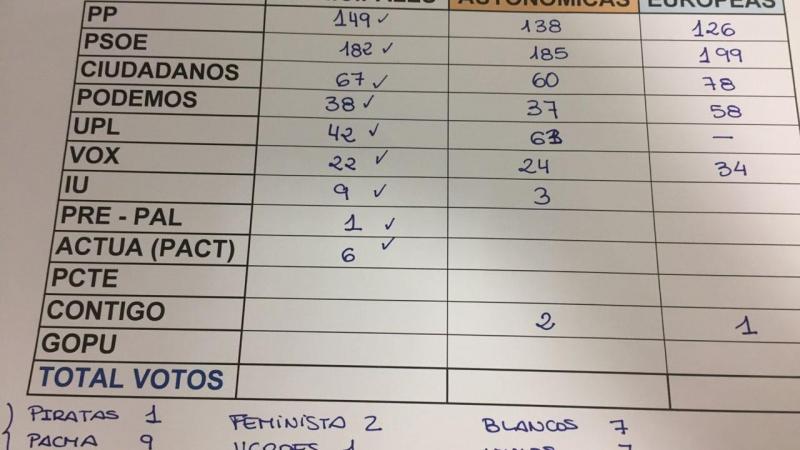 AUTONÓMICAS EUROPEAS
PP 149 ✓ 138 126
PSOE 182 ✓ 185 199
CIUDADANOS 67 ✓ 60 78
PODEMOS 38 ✓ 37 58
UPL 42 ✓ —
VOX 22 ✓ 24 34
IU 9 ✓ 3
PRE - PAL 1 ✓
ACTUA (PACT) 6 ✓
PCTE
CONTIGO 2 1
GOPU
TOTAL VOTOS
PIRATAS 1 FEMINISTA 2 BLANCOS 7
PACMA 9 1 7